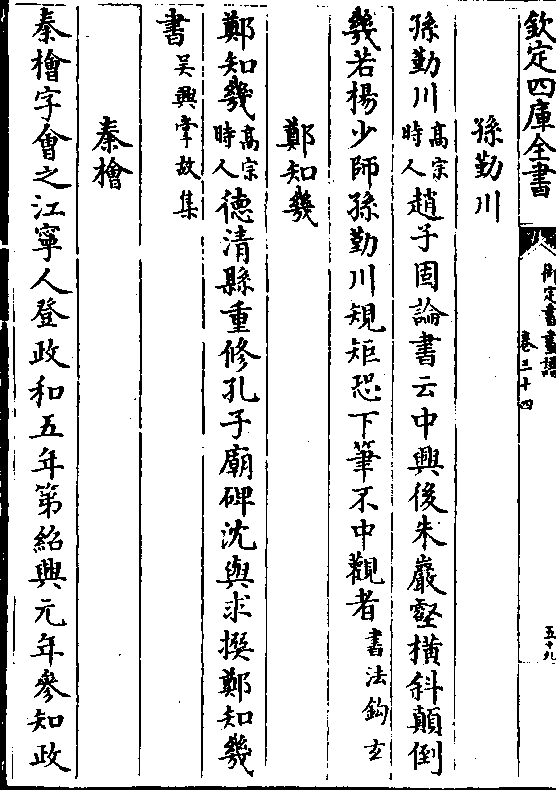 欽定四庫全書
御定書畫譜
卷三十四
五十九
孫勤川
孫勤川高宗時人趙子固論書云中興後朱巖壑横斜顛倒
幾若楊少師孫勤川規矩恐下筆不中觀者書法鈎玄
鄭知幾
鄭知幾高宗時人德清縣重修孔子廟碑沈與求撰鄭知幾
書吴興掌故集
秦檜
秦檜字會之江寧人登政和五年第紹興元年參知政